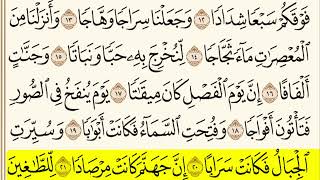 فَوْقَكُمْ سَبْعًا شِدَادًا ١٢ وَجَعَلْنَا سِرَاجًا وَهَّاجًا ١٣ وَأَنزَلْنَا مِنَ
ٱلْمُعْصِرَٰتِ مَآءً ثَجَّاجًا ١٤ لِّنُخْرِجَ بِهِۦ حَبًّا وَنَبَاتًا ١٥ وَجَنَّٰتٍ
أَلْفَافًا ١٦ إِنَّ يَوْمَ ٱلْفَصْلِ كَانَ مِيقَٰتًا ١٧ يَوْمَ يُنفَخُ فِى ٱلصُّورِ
فَتَأْتُونَ أَفْوَاجًا ١٨ وَفُتِحَتِ ٱلسَّمَآءُ فَكَانَتْ أَبْوَٰبًا ١٩ وَسُيِّرَتِ
ٱلْجِبَالُ فَكَانَتْ سَرَابًا ٢٠ إِنَّ جَهَنَّمَ كَانَتْ مِرْصَادًا ٢١ لِّلطَّٰغِينَ